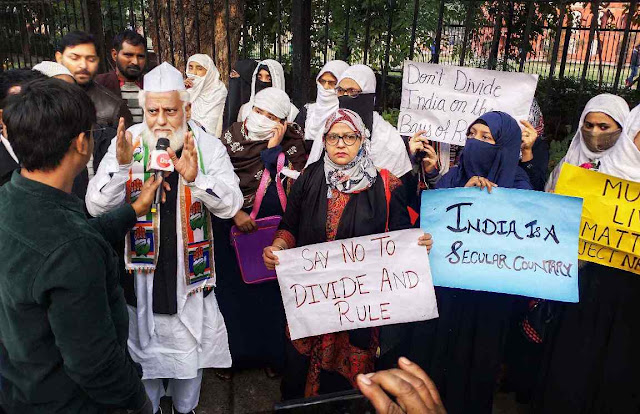 Don't Divide
India on the
SAY NO TO
DIVIDE AND
RULE
INDIA IS A
SECULAR COUNTARY
LI
MATTE
JECT